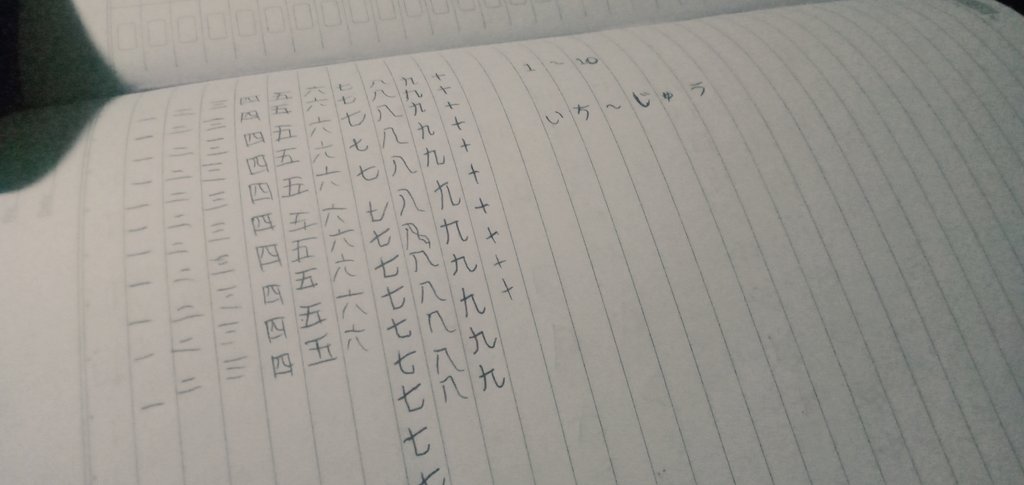 1 ~ 10
いち~じゅう
一一一一一一一一一一
二二二二二二二二二二二
三三三三三三三三三三三
四四四四四四四四四四
五五五五五五五五五五
六六六六六六六六六六
七七七七七七七七七七七七七七
八八八八八八八八八八八
九九九九九九九九九九九
十十十十十十十十十十